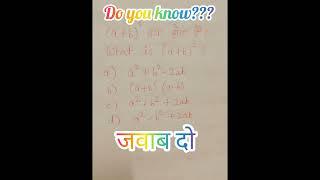 Do you know???
(a+b)² का सूत्र है?
What is (a+b)²?
a) a²+b²-2ab
b) (a+b) (a-b)
c) a²+b²+2ab
d) a²-b²+2ab
जवाब दो